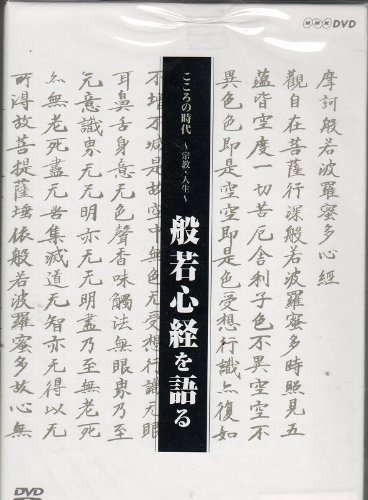 NHK DVD
摩訶般若波羅蜜多心經
觀自在菩薩行深般若波羅蜜多時照見五
蘊皆空度一切苦厄舍利子色不異空空不
異色色即是空空即是色受想行識亦復如
こころの時代 ～宗教・人生～
般若心経を語る
不增不減是故空中無色无受想行識无
耳鼻舌身意无色聲香味觸法無眼界乃至
无意識界无无明亦无无明盡乃至無老死
亦無老死盡无苦集滅道无智亦无得以无
所得故菩提薩埵依般若波羅蜜多故心無
DVD